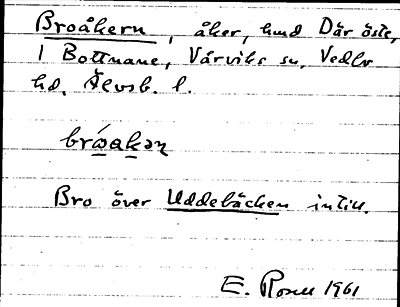 Broåkern, åker, hmd Där öste,
1 Bottnane, Vårviks sn, Vedbo
hd, Älvsb. l.
brǿakən
Bro över Uddebäcken intill.
E. Rosell 1961